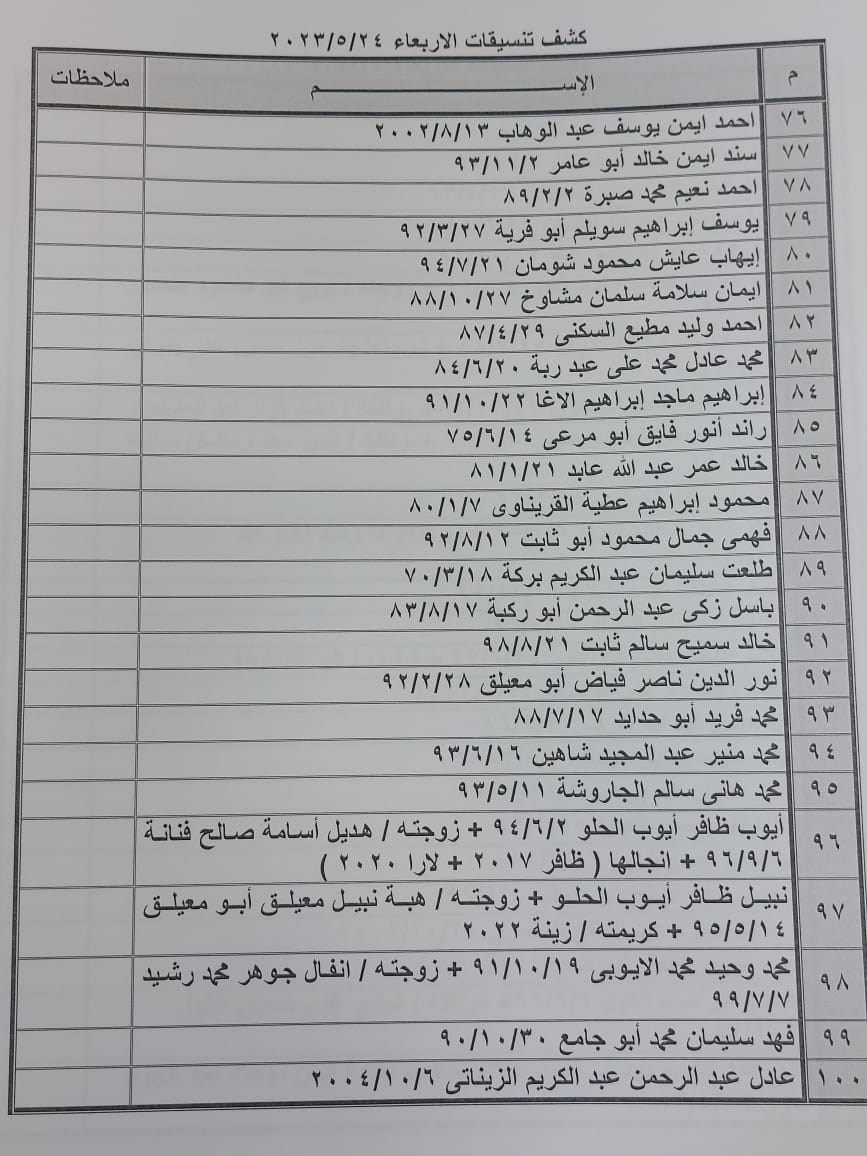 كشف تنسيقات الاربعاء ٢٠٢٣/٥/٢٤
م الإســـــــــم ملاحظات
٧٦ احمد ايمن يوسف عبد الوهاب ٢٠٠٢/٨/١٣
٧٧ سند ايمن خالد أبو عامر ٩٣/١١/٢
٧٨ احمد نعيم محمد صبرة ٨٩/٢/٢
٧٩ يوسف إبراهيم سويلم أبو فرية ٩٢/٣/٢٧
٨٠ إيهاب عايش محمود شومان ٩٤/٧/٢١
٨١ ايمان سلامة سلمان مشاوخ ٨٨/١٠/٢٧
٨٢ احمد وليد مطيع السكنى ٨٧/٤/٢٩
٨٣ محمد عادل محمد على عبد ربة ٨٤/٦/٢٠
٨٤ إبراهيم ماجد إبراهيم الاغا ٩١/١٠/٢٢
٨٥ رائد أنور فايق أبو مرعى ٧٥/٦/١٤
٨٦ خالد عمر عبد الله عابد ٨١/١/٢١
٨٧ محمود إبراهيم عطية القريناوى ٨٠/١/٧
٨٨ فهمى جمال محمود أبو ثابت ٩٢/٨/١٢
٨٩ طلعت سليمان عبد الكريم بركة ٧٠/٣/١٨
٩٠ باسل زكى عبد الرحمن أبو ركبة ٨٣/٨/١٧
٩١ خالد سميح سالم ثابت ٩٨/٨/٢١
٩٢ نور الدين ناصر فياض أبو معيلق ٩٢/٢/٢٨
٩٣ محمد فريد أبو حدايد ٨٨/٧/١٧
٩٤ محمد منير عبد المجيد شاهين ٩٣/٦/١٦
٩٥ محمد هانى سالم الجاروشة ٩٣/٥/١١
٩٦ أيوب ظافر أيوب الحلو ٩٤/٦/٢ + زوجته / هديل أسامة صالح فنانة
٩٦/٩/٦ + انجالها ( ظافر ٢٠١٧ + لارا ٢٠٢٠ )
٩٧ نبيل ظافر أيوب الحلو + زوجته / هبة نبيل معيلق أبو معيلق
٩٥/٥/١٤ + كريمته / زينة ٢٠٢٢
٩٨ محمد وحيد محمد الايوبى ٩١/١٠/١٩ + زوجته / انفال جوهر محمد رشيد
٩٩/٧/٧
٩٩ فهد سليمان محمد أبو جامع ٩٠/١٠/٣٠
١٠٠ عادل عبد الرحمن عبد الكريم الزيناتى ٢٠٠٤/١٠/٦